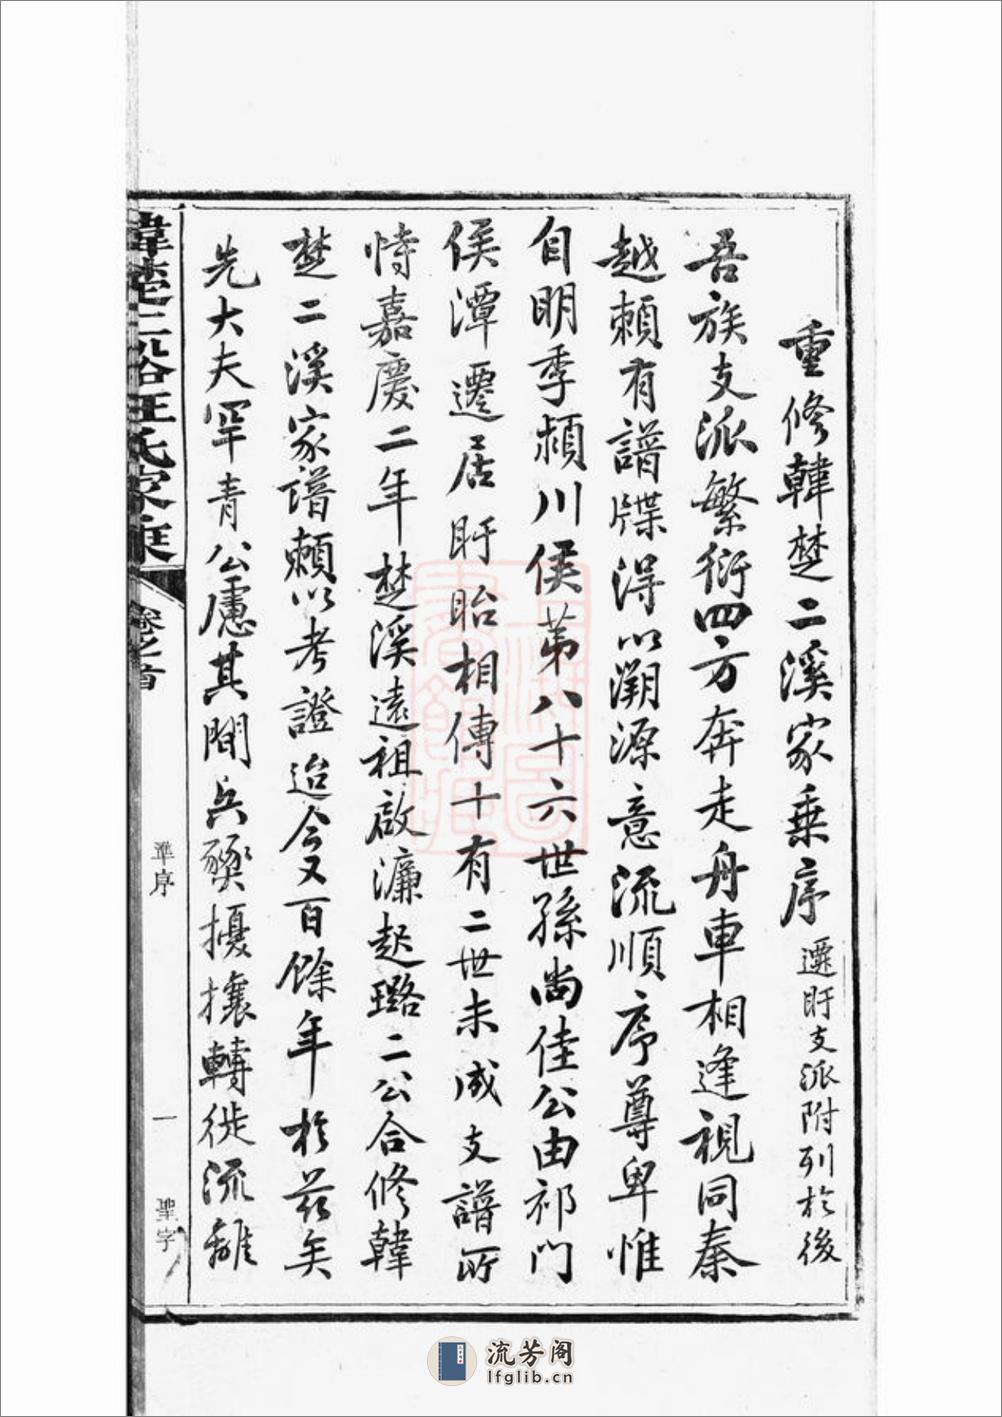 重修韓楚二溪家乗序遷盱支派附列於後
吾族支派繁衍四方奔走舟車相逢視同秦
越賴有譜牒得以溯源意流順序尊卑惟
自明季頳川侯第八十六世孫尚佳公由祁門
侯潭遷居盱眙相傳十有二世未成支譜所
恃嘉慶二年楚溪遠祖啟濂起璐二公合修韓
楚二溪家譜賴以考證迨今又百餘年於茲矣
先大夫罕青公慮其間兵燹擾攘轉徙流離
韓楚二谿汪氏家乘
卷之首
準序
一
聖字
流芳阁
lfglib.cn